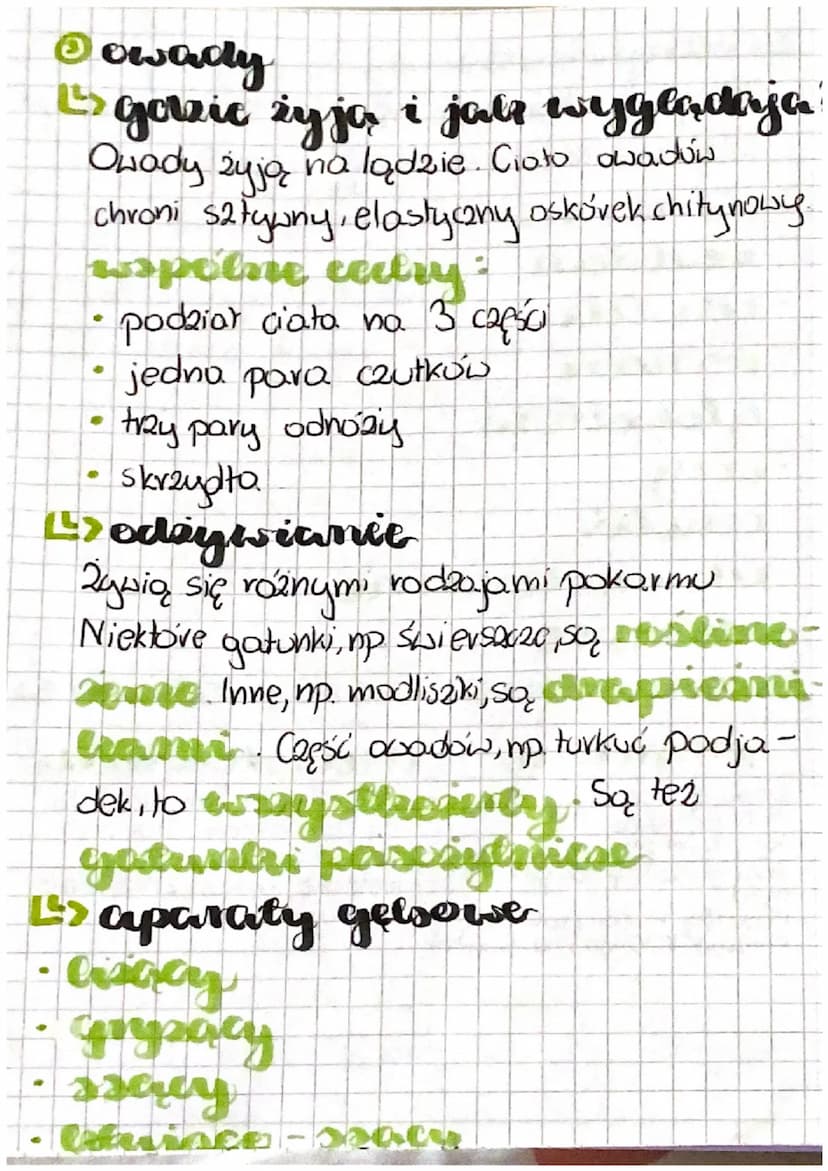 owady
gdzie żyją i jak wyglądają?
Owady żyją na lądzie. Ciało owadów
chroni sztywny, elastyczny oskórek chitynowy.
wspólne cechy:
• podział ciała na 3 części
• jedna para czułków
• trzy pary odnóży
• skrzydła
odżywianie
Żywią się różnymi rodzajami pokarmu
Niektóre gatunki, np świerszcze, są roślino-
żerne. Inne, np. modliszki, są drapieżni-
kami. Część owadów, np. turkuć podja-
dek, to wszystkożercy. Są też
gatunki pasożytnicze
aparaty gębowe
• liżący
• gryzący
• ssący
• kłująco - ssący